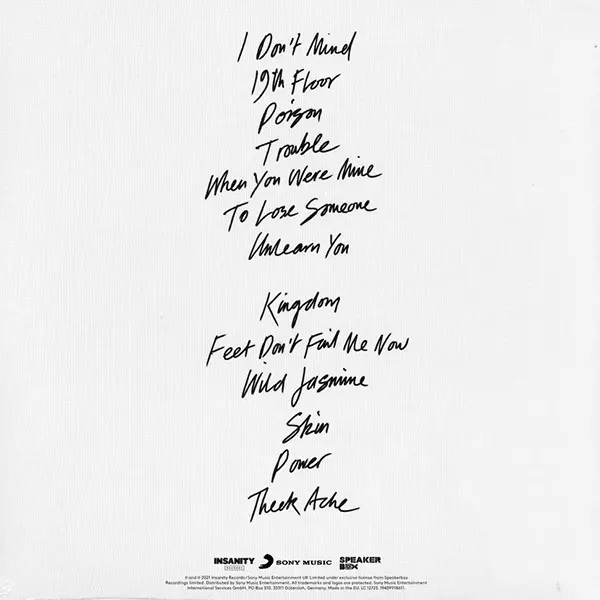 I Don't Mind
19th Floor
Poison
Trouble
When You Were Mine
To Lose Someone
Unlearn You
Kingdom
Feet Don't Fail Me Now
Wild Jasmine
Skin
Power
Theek Ache
INSANITY RECORDS SONY MUSIC SPEAKER BOX
℗ and © 2021 Insanity Records/Sony Music Entertainment UK Limited under exclusive license from Speakerbox
Recordings limited. Distributed by Sony Music Entertainment. All trademarks and logos are protected. Sony Music Entertainment
International Services GmbH, PO Box 510, 33311 Gütersloh, Germany. Made in the EU. LC 12723.